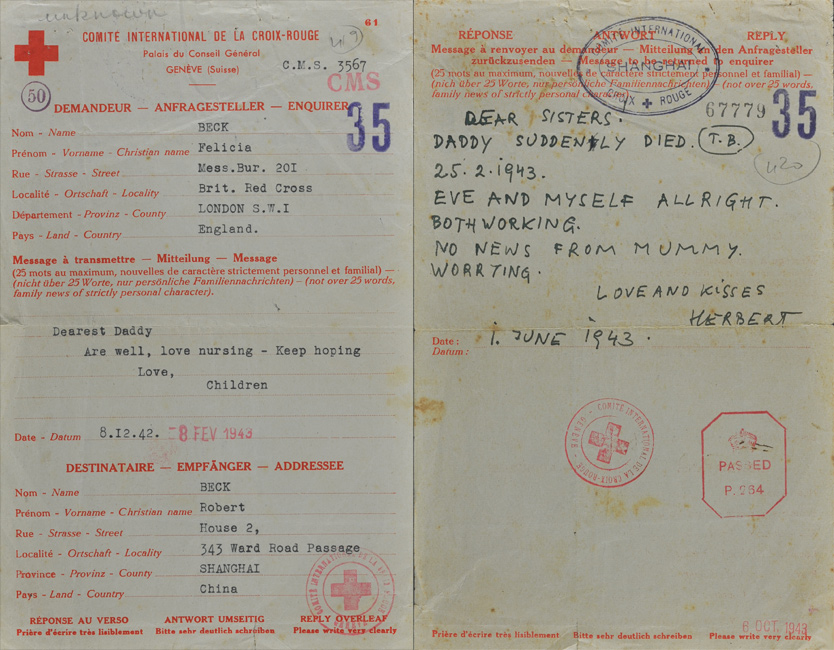 unknown
61
COMITÉ INTERNATIONAL DE LA CROIX-ROUGE
Palais du Conseil Général
GENÈVE (Suisse)
C.M.S. 3567
CMS
50
35
DEMANDEUR — ANFRAGESTELLER — ENQUIRER
Nom - Name BECK
Prénom - Vorname - Christian name Felicia
Rue - Strasse - Street Mess.Bur. 20I
Localité - Ortschaft - Locality Brit. Red Cross
Département - Provinz - County LONDON S.W.I
Pays - Land - Country England.
Message à transmettre — Mitteilung — Message
(25 mots au maximum, nouvelles de caractère strictement personnel et familial) —
(nicht über 25 Worte, nur persönliche Familiennachrichten) — (not over 25 words,
family news of strictly personal character).
Dearest Daddy
Are well, love nursing - Keep hoping
Love,
Children
Date - Datum 8.I2.42. -8 FEV 1943
DESTINATAIRE — EMPFÄNGER — ADDRESSEE
Nom - Name BECK
Prénom - Vorname - Christian name Robert
Rue - Strasse - Street House 2,
Localité - Ortschaft - Locality 343 Ward Road Passage
Province - Provinz - County SHANGHAI
Pays - Land - Country China
RÉPONSE AU VERSO ANTWORT UMSEITIG REPLY OVERLEAF
Prière d'écrire très lisiblement Bitte sehr deutlich schreiben Please write very clearly
RÉPONSE ANTWORT REPLY
Message à renvoyer au demandeur — Mitteilung an den Anfragesteller
zurückzusenden — Message to be returned to enquirer
(25 mots au maximum, nouvelles de caractère strictement personnel et familial) —
(nicht über 25 Worte, nur persönliche Familiennachrichten) — (not over 25 words,
family news of strictly personal character).
COMITÉ INTERNATIONAL
SHANGHAI
CROIX ROUGE
67779
35
420
DEAR SISTERS.
DADDY SUDDENLY DIED. (T.B.)
25.2.1943.
EVE AND MYSELF ALLRIGHT.
BOTH WORKING.
NO NEWS FROM MUMMY.
WORRTING.
LOVE AND KISSES
HERBERT
Date: 1. JUNE 1943.
Datum:
COMITÉ INTERNATIONAL DE LA CROIX-ROUGE - GENÈVE
PASSED
6 OCT. 1943
Prière d'écrire très lisiblement Bitte sehr deutlich schreiben Please write very clearly